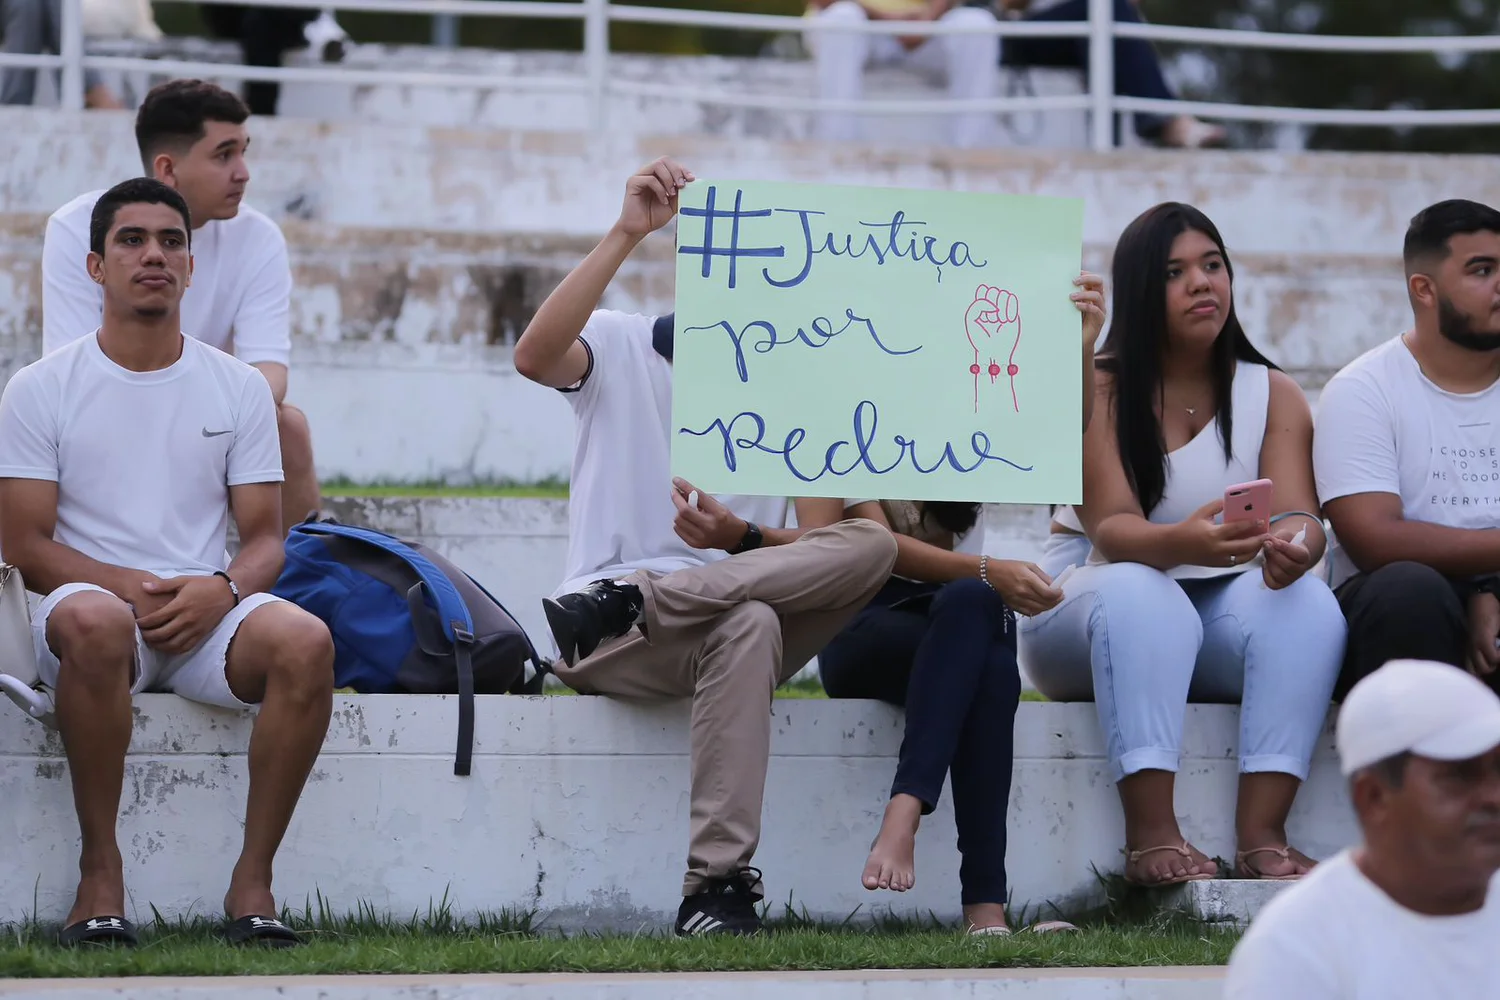 #Justiça
por
Pedru
I CHOOSE
TO S
HE GOOD
EVERYTH